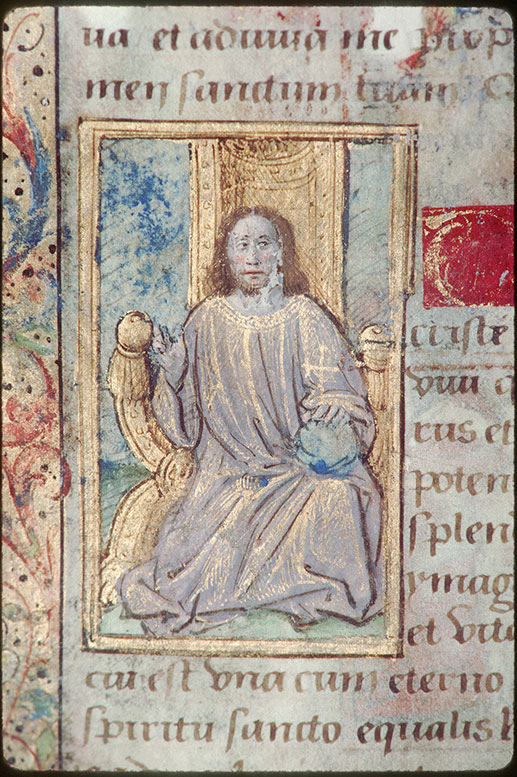 ua et adiuva me prop
men sanctum tuam
criste
vnu
rus et
poten
splen
ymag
et vita
cui est vna cum eterno
spiritu sancto equalis